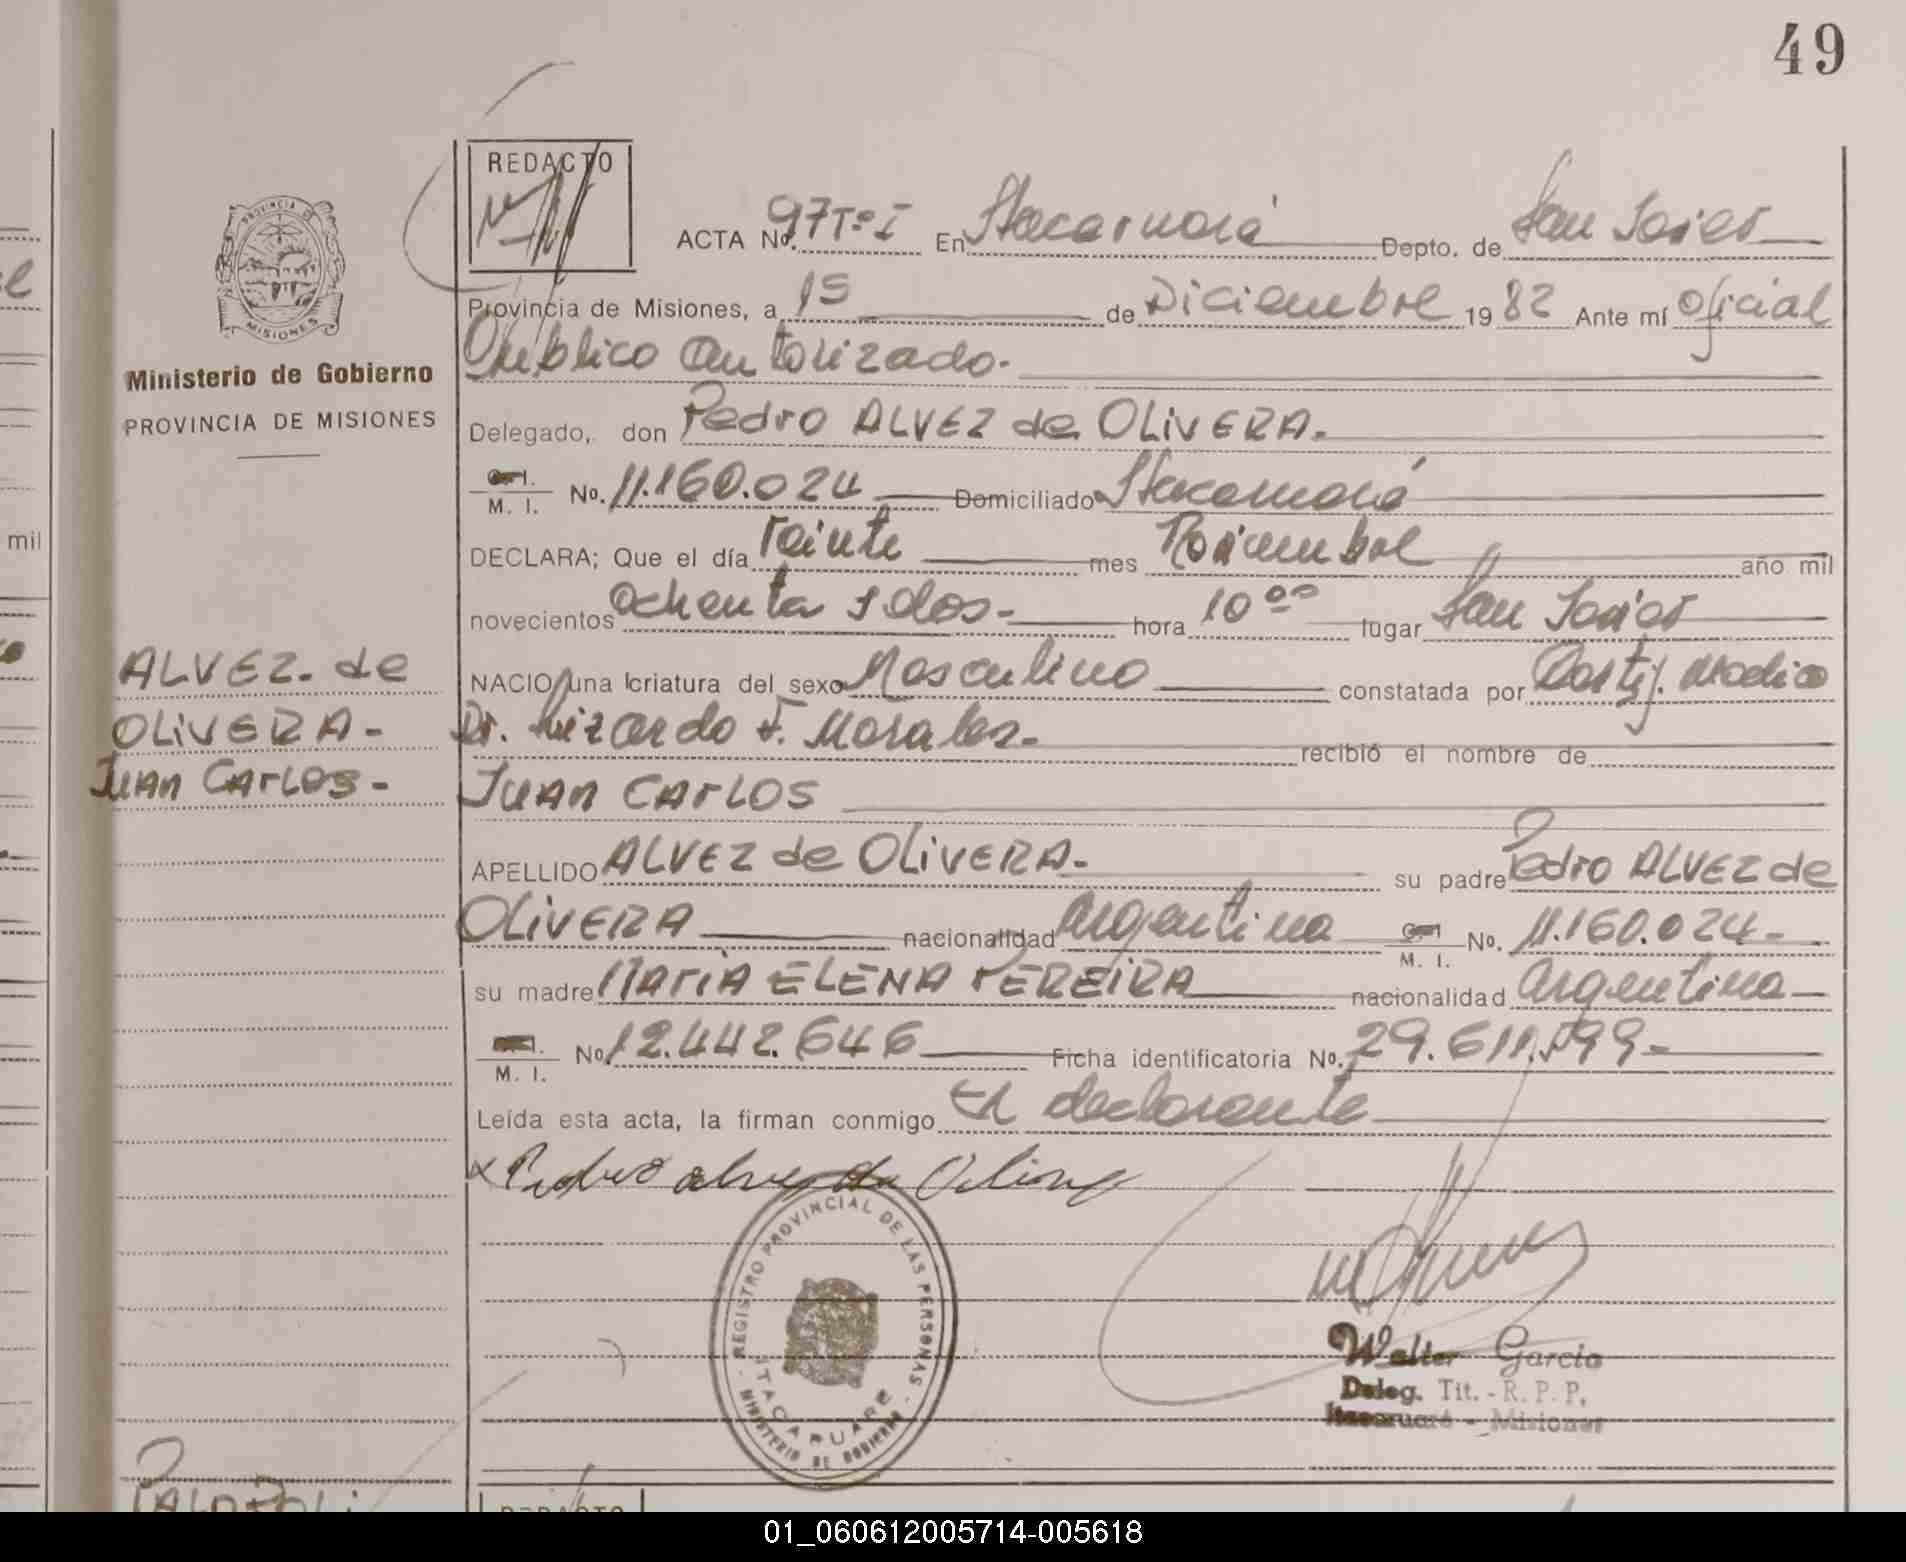 49
REDACTO
ACTA No. 97 Tº I En Itacaruaré Depto. de San Javier
Provincia de Misiones, a 15 de Diciembre 1982 Ante mí Oficial
Público autorizado.
Ministerio de Gobierno
PROVINCIA DE MISIONES
Delegado, don Pedro ALVEZ de OLIVERA.
M. I. No. 11.160.024 Domiciliado Itacaruaré
DECLARA; Que el día veinte mes Noviembre año mil
novecientos ochenta y dos- hora 10 00 lugar San Javier
NACIO una criatura del sexo Masculino constatada por Certif. Medico
Dr. Lizardo F. Morales- recibió el nombre de
JUAN CARLOS
ALVEZ. de
OLIVERA-
JUAN CARLOS-
APELLIDO ALVEZ de OLIVERA- su padre Pedro ALVEZ de
OLIVERA nacionalidad argentina No. 11.160.024-
M. I.
su madre MARIA ELENA PEREIRA nacionalidad argentina
M. I. No. 12.442.646 Ficha identificatoria No. 29.611.
Leída esta acta, la firman conmigo El declarante
Pedro alves de
REGISTRO PROVINCIAL DE LAS PERSONAS
ITACARUARE
MINISTERIO DE GOBIERNO
Walter Garcia
Deleg. Tit. - R. P. P.
Itacaruaré - Misiones
mil
REDACTO
01_060612005714-005618